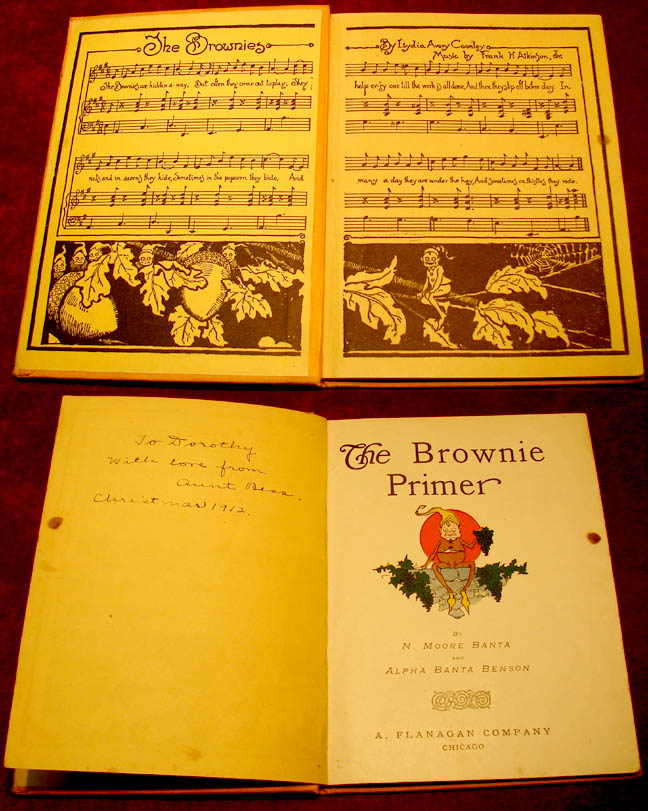 The Brownies
The Brownies are hidden a-way, But often they come out to play; They
nuts and in acorns they hide, Sometimes in the popcorn they bide. And
By Lydia Avery Coonley
Music by Frank H Atkinson, Jr.
help ev-'ry one till the work is all done, And then they slip off before day. In
many a day they are under the hay, And sometimes on thistles they ride.
To Dorothy
With love from
Aunt Bess.
Christmas 1912.
The Brownie
Primer
BY
N. MOORE BANTA
AND
ALPHA BANTA BENSON
A. FLANAGAN COMPANY
CHICAGO